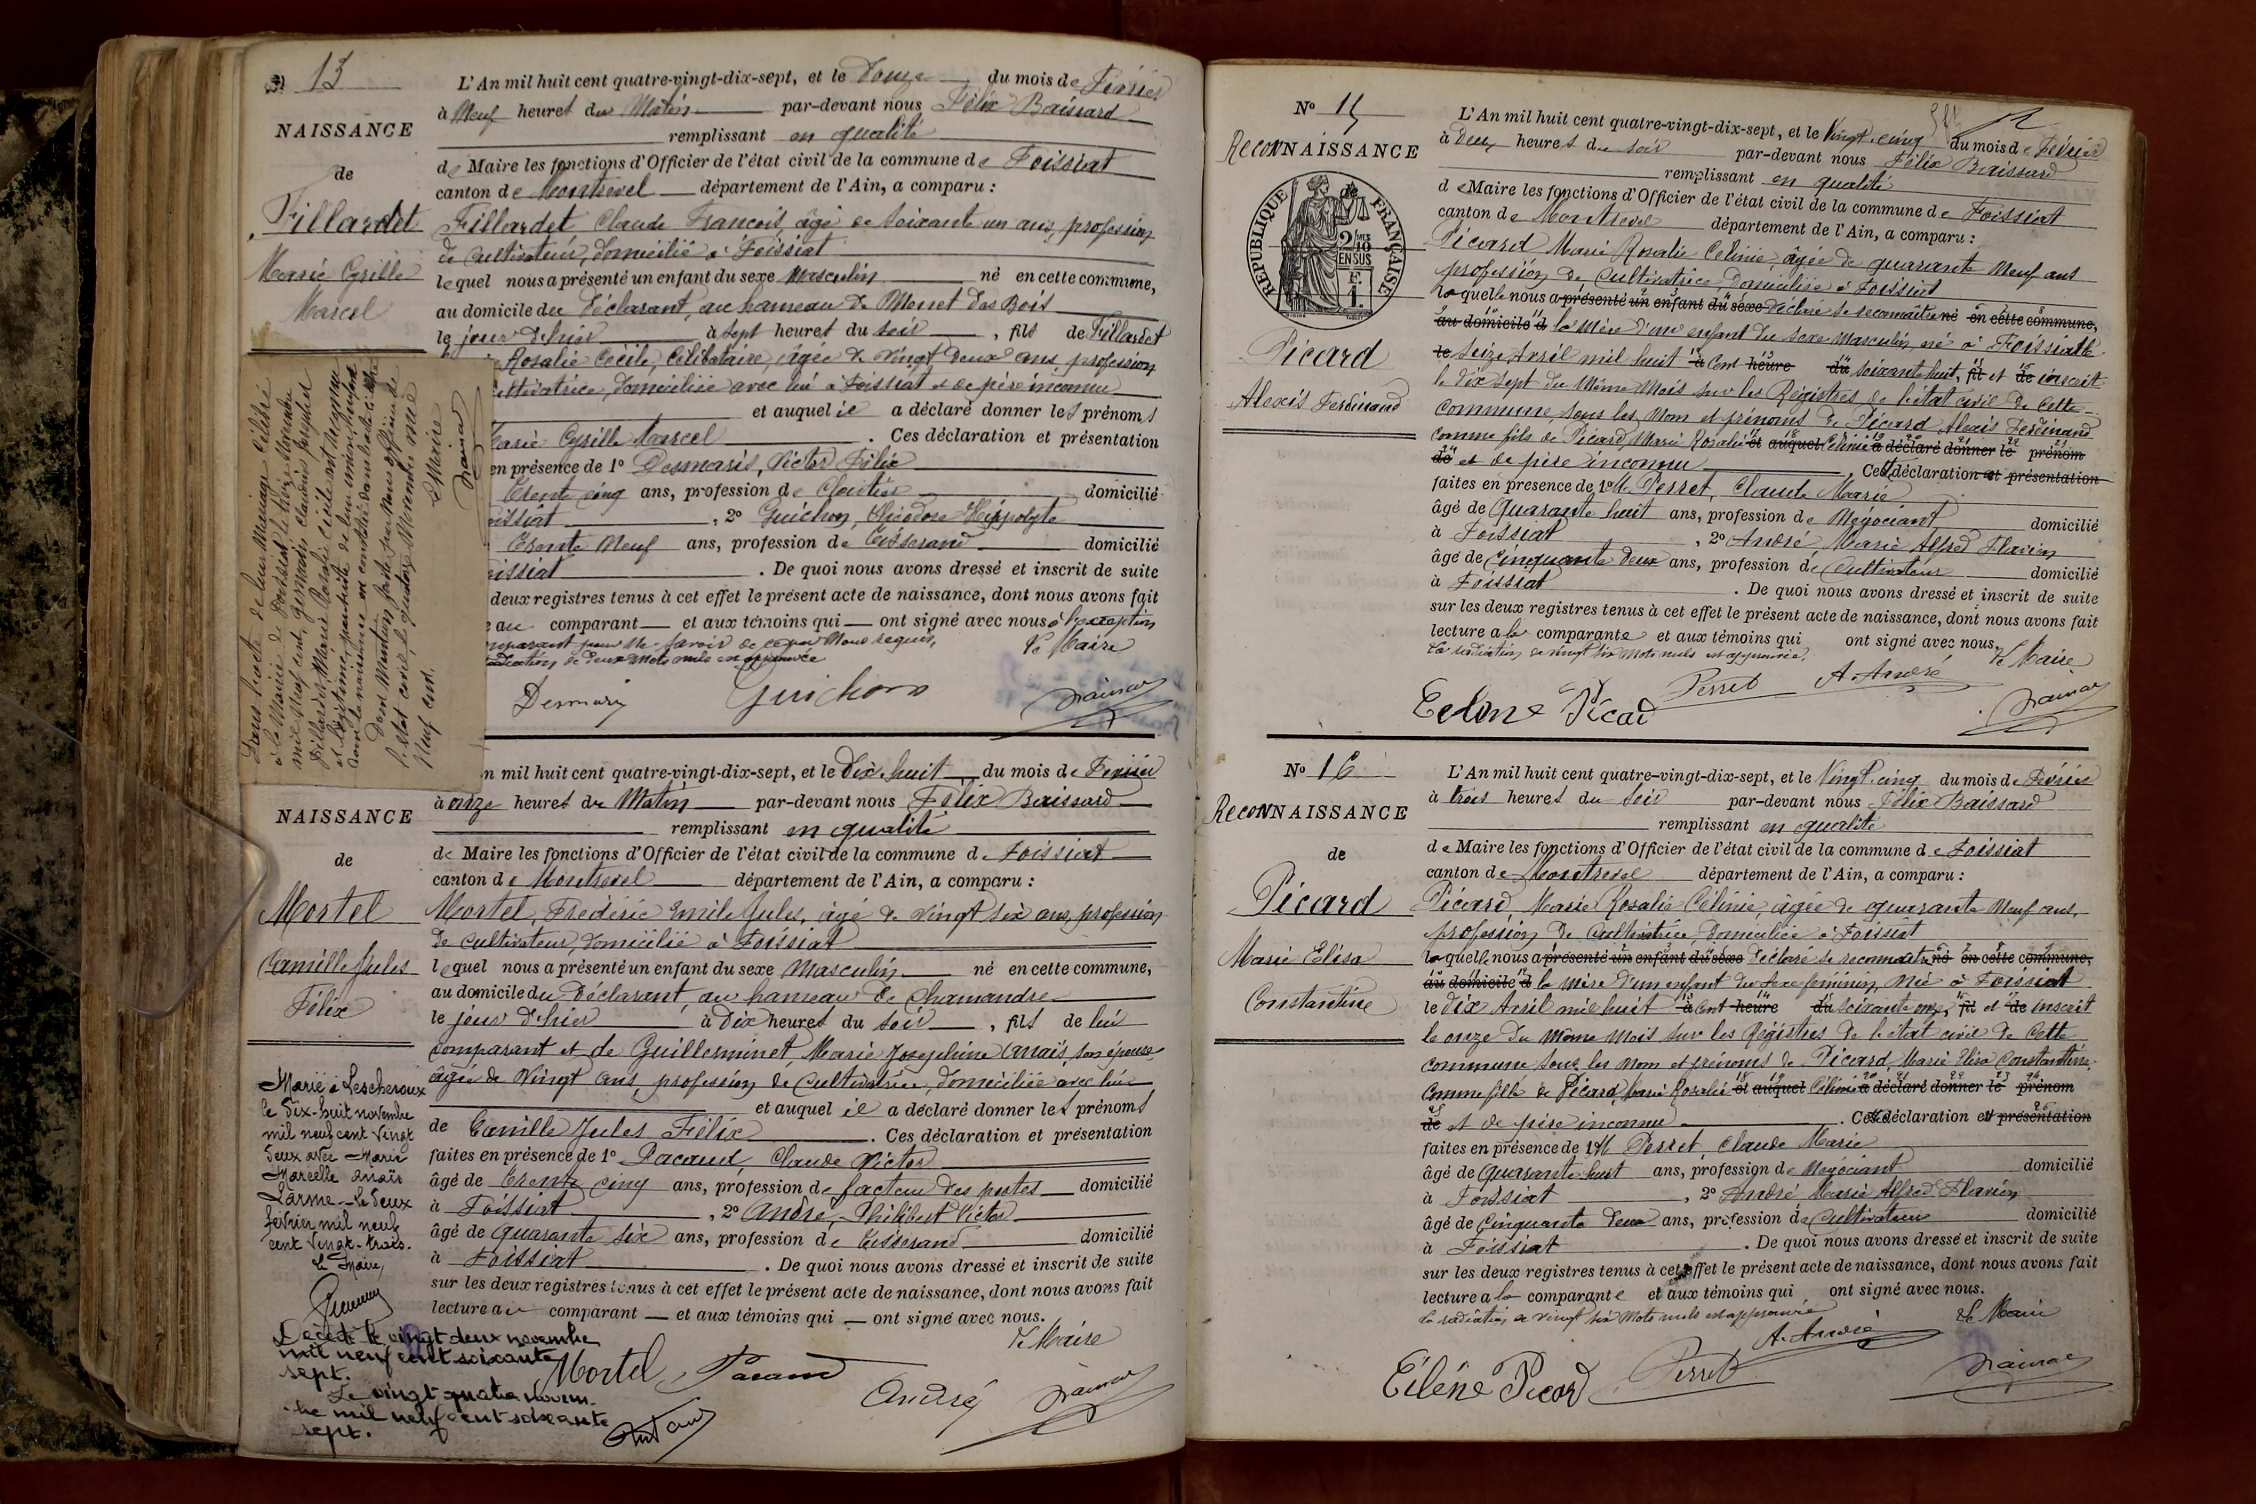 13
NAISSANCE
de
Fillardet
Marie Cyrille
Marcel
L'An mil huit cent quatre-vingt-dix-sept, et le Douze du mois de Février
à Neuf heures du Matin par-devant nous Félix Baissard
remplissant en qualité
de Maire les fonctions d'Officier de l'état civil de la commune de Foissiat
canton de Montrevel département de l'Ain, a comparu :
Fillardet, Claude François, âgé de Soixante un ans, profession
de Cultivateur, domicilié à Foissiat
lequel nous a présenté un enfant du sexe Masculin né en cette commune,
au domicile du Déclarant, au hameau de Monet des Bois
le jour d'hier à Sept heures du Soir, fils de Fillardet
Rosalie Cécile, Célibataire, âgée de Vingt deux ans, profession
domiciliée avec lui à Foissiat et de père inconnu
et auquel il a déclaré donner les prénoms
Marie Cyrille Marcel. Ces déclaration et présentation
en présence de 1° Desmaris, Victor Félix
Trente cinq ans, profession de Cloutier domicilié
, 2° Guichon, Théodore Hippolyte
Trente Neuf ans, profession de Tisserand domicilié
. De quoi nous avons dressé et inscrit de suite
deux registres tenus à cet effet le présent acte de naissance, dont nous avons fait
au comparant et aux témoins qui ont signé avec nous à l'exception
comparant pour ne savoir de ce par Nous requis,
de deux Mots nuls est approuvée
Le Maire
Desmaris Guichon
Dans l'acte de leur Mariage Célébré
à la Mairie de Foissiat, le treize Novembre
mil Neuf cent, Germain, Claudius Joseph et
Fillardet, Marie Rosalie Cécile ont reconnu
et légitimé, par suite de leur union, l'enfant
dont la naissance est constatée dans l'acte ci-contre
Dont Mention faite par nous officier de
l'état civil, le quatorze Novembre mil
Neuf cent.
Le Maire
NAISSANCE
de
Mortel
Camille Jules
Félix
Marié à Lescheroux
le dix-huit novembre
mil neuf cent vingt
deux avec Marie
Marcelle Anaïs
Larme. Le deux
février mil neuf
cent vingt-trois.
Le Maire,
Décédé le vingt deux novembre
mil neuf cent soixante
sept.
Le vingt quatre novem-
bre mil neuf cent soixante
sept.
n mil huit cent quatre-vingt-dix-sept, et le Dix huit du mois de Février
à onze heures du Matin par-devant nous Félix Baissard
remplissant en qualité
de Maire les fonctions d'Officier de l'état civil de la commune de Foissiat
canton de Montrevel département de l'Ain, a comparu :
Mortel, Frédéric Emile Jules, âgé de Vingt six ans, profession
de Cultivateur, domicilié à Foissiat
lequel nous a présenté un enfant du sexe Masculin né en cette commune,
au domicile du Déclarant, au hameau de Chamandre
le jour d'hier à Dix heures du soir, fils de lui
comparant et de Guillerminet, Marie Joséphine Anaïs, son épouse,
âgée de Vingt ans, profession de Cultivatrice, domiciliée avec lui
et auquel il a déclaré donner les prénoms
de Camille Jules Félix. Ces déclaration et présentation
faites en présence de 1° Pacaud, Claude Victor
âgé de Trente cinq ans, profession de facteur des postes domicilié
à Foissiat, 2° André, Philibert Victor
âgé de quarante six ans, profession de Tisserand domicilié
à Foissiat. De quoi nous avons dressé et inscrit de suite
sur les deux registres tenus à cet effet le présent acte de naissance, dont nous avons fait
lecture au comparant et aux témoins qui ont signé avec nous.
Le Maire
Mortel Pacaud André
N° 15
ReconNAISSANCE
de
RÉPUBLIQUE FRANÇAISE
2/10 EN SUS
F. 1.
Picard
Alexis Ferdinand
L'An mil huit cent quatre-vingt-dix-sept, et le Vingt-cinq du mois de Février
à Deux heures du soir par-devant nous Félix Baissard
remplissant en qualité
de Maire les fonctions d'Officier de l'état civil de la commune de Foissiat
canton de Montrevel département de l'Ain, a comparu :
Picard Marie Rosalie Célinie, âgée de quarante Neuf ans
profession de Cultivatrice, domiciliée à Foissiat
laquelle nous a présenté un enfant du sexe déclaré se reconnaître né en cette commune,
au domicile d la Mère d'un enfant du sexe Masculin, né à Foissiat
le Seize Avril mil huit à Cent heure du soixante huit, fil et de inscrit
le dix sept du même Mois sur les Registres de l'état civil de Cette
Commune, sous les Nom et prénoms de Picard Alexis Ferdinand
comme fils de Picard, Marie Rosalie et auquel Célinie a déclaré donner le prénom
de et de père inconnu. Cette déclaration et présentation
faites en presence de 1° M. Perret, Claude Marie
âgé de Quarante huit ans, profession de Négociant domicilié
à Foissiat, 2° André Marie Alfred Flavien
âgé de Cinquante deux ans, profession de Cultivateur domicilié
à Foissiat. De quoi nous avons dressé et inscrit de suite
sur les deux registres tenus à cet effet le présent acte de naissance, dont nous avons fait
lecture a la comparante et aux témoins qui ont signé avec nous.
La radiation de vingt six Mots nuls est approuvée.
Le Maire
Perret A. André
N° 16
ReconNAISSANCE
de
Picard
Marie Elisa
Constantine
L'An mil huit cent quatre-vingt-dix-sept, et le Vingt-cinq du mois de Février
à trois heures du soir par-devant nous Félix Baissard
remplissant en qualité
de Maire les fonctions d'Officier de l'état civil de la commune de Foissiat
canton de Montrevel département de l'Ain, a comparu :
Picard, Marie Rosalie Célinie, âgée de quarante Neuf ans,
profession de Cultivatrice, domiciliée à Foissiat
laquelle nous a présenté un enfant du sexe déclaré se reconnaître né en cette commune,
au domicile d la Mère d'un enfant du sexe féminin, née à Foissiat
le dix Avril mil huit à Cent heure du soixante onze, fil et de inscrit
le onze du même mois sur les Registres de l'état civil de Cette
commune sous les nom et prénoms de Picard, Marie Elisa Constantine,
Comme fille de Picard, Marie Rosalie et auquel Célinie a déclaré donner le prénom
de et de père inconnu. Cette déclaration et présentation
faites en présence de 1° M Perret, Claude Marie
âgé de quarante huit ans, profession de Négociant domicilié
à Foissiat, 2° André Marie Alfred Flavien
âgé de Cinquante deux ans, profession de Cultivateur domicilié
à Foissiat. De quoi nous avons dressé et inscrit de suite
sur les deux registres tenus à cet effet le présent acte de naissance, dont nous avons fait
lecture a la comparante et aux témoins qui ont signé avec nous.
La radiation de vingt six Mots nuls est approuvée
Le Maire
A. André
Célénè Picard Perret